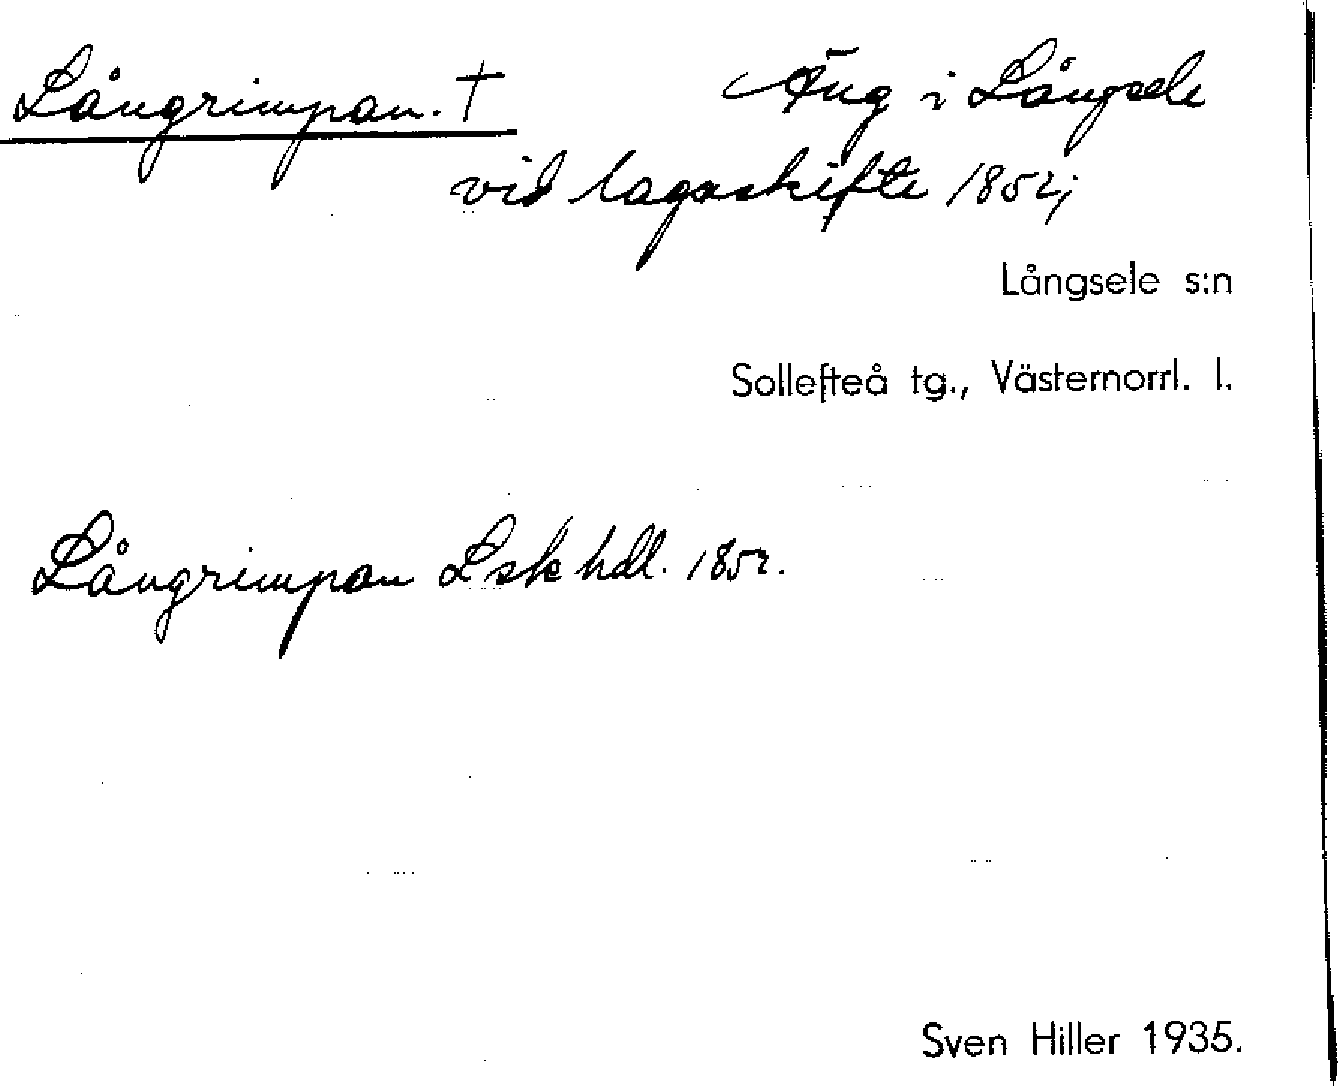 Långrimpan. † Äng i Långsele
vid lagaskifte 1852;
Långsele s:n
Sollefteå tg., Västernorrl. l.
Långrimpan Lsk hdl. 1852.
Sven Hiller 1935.